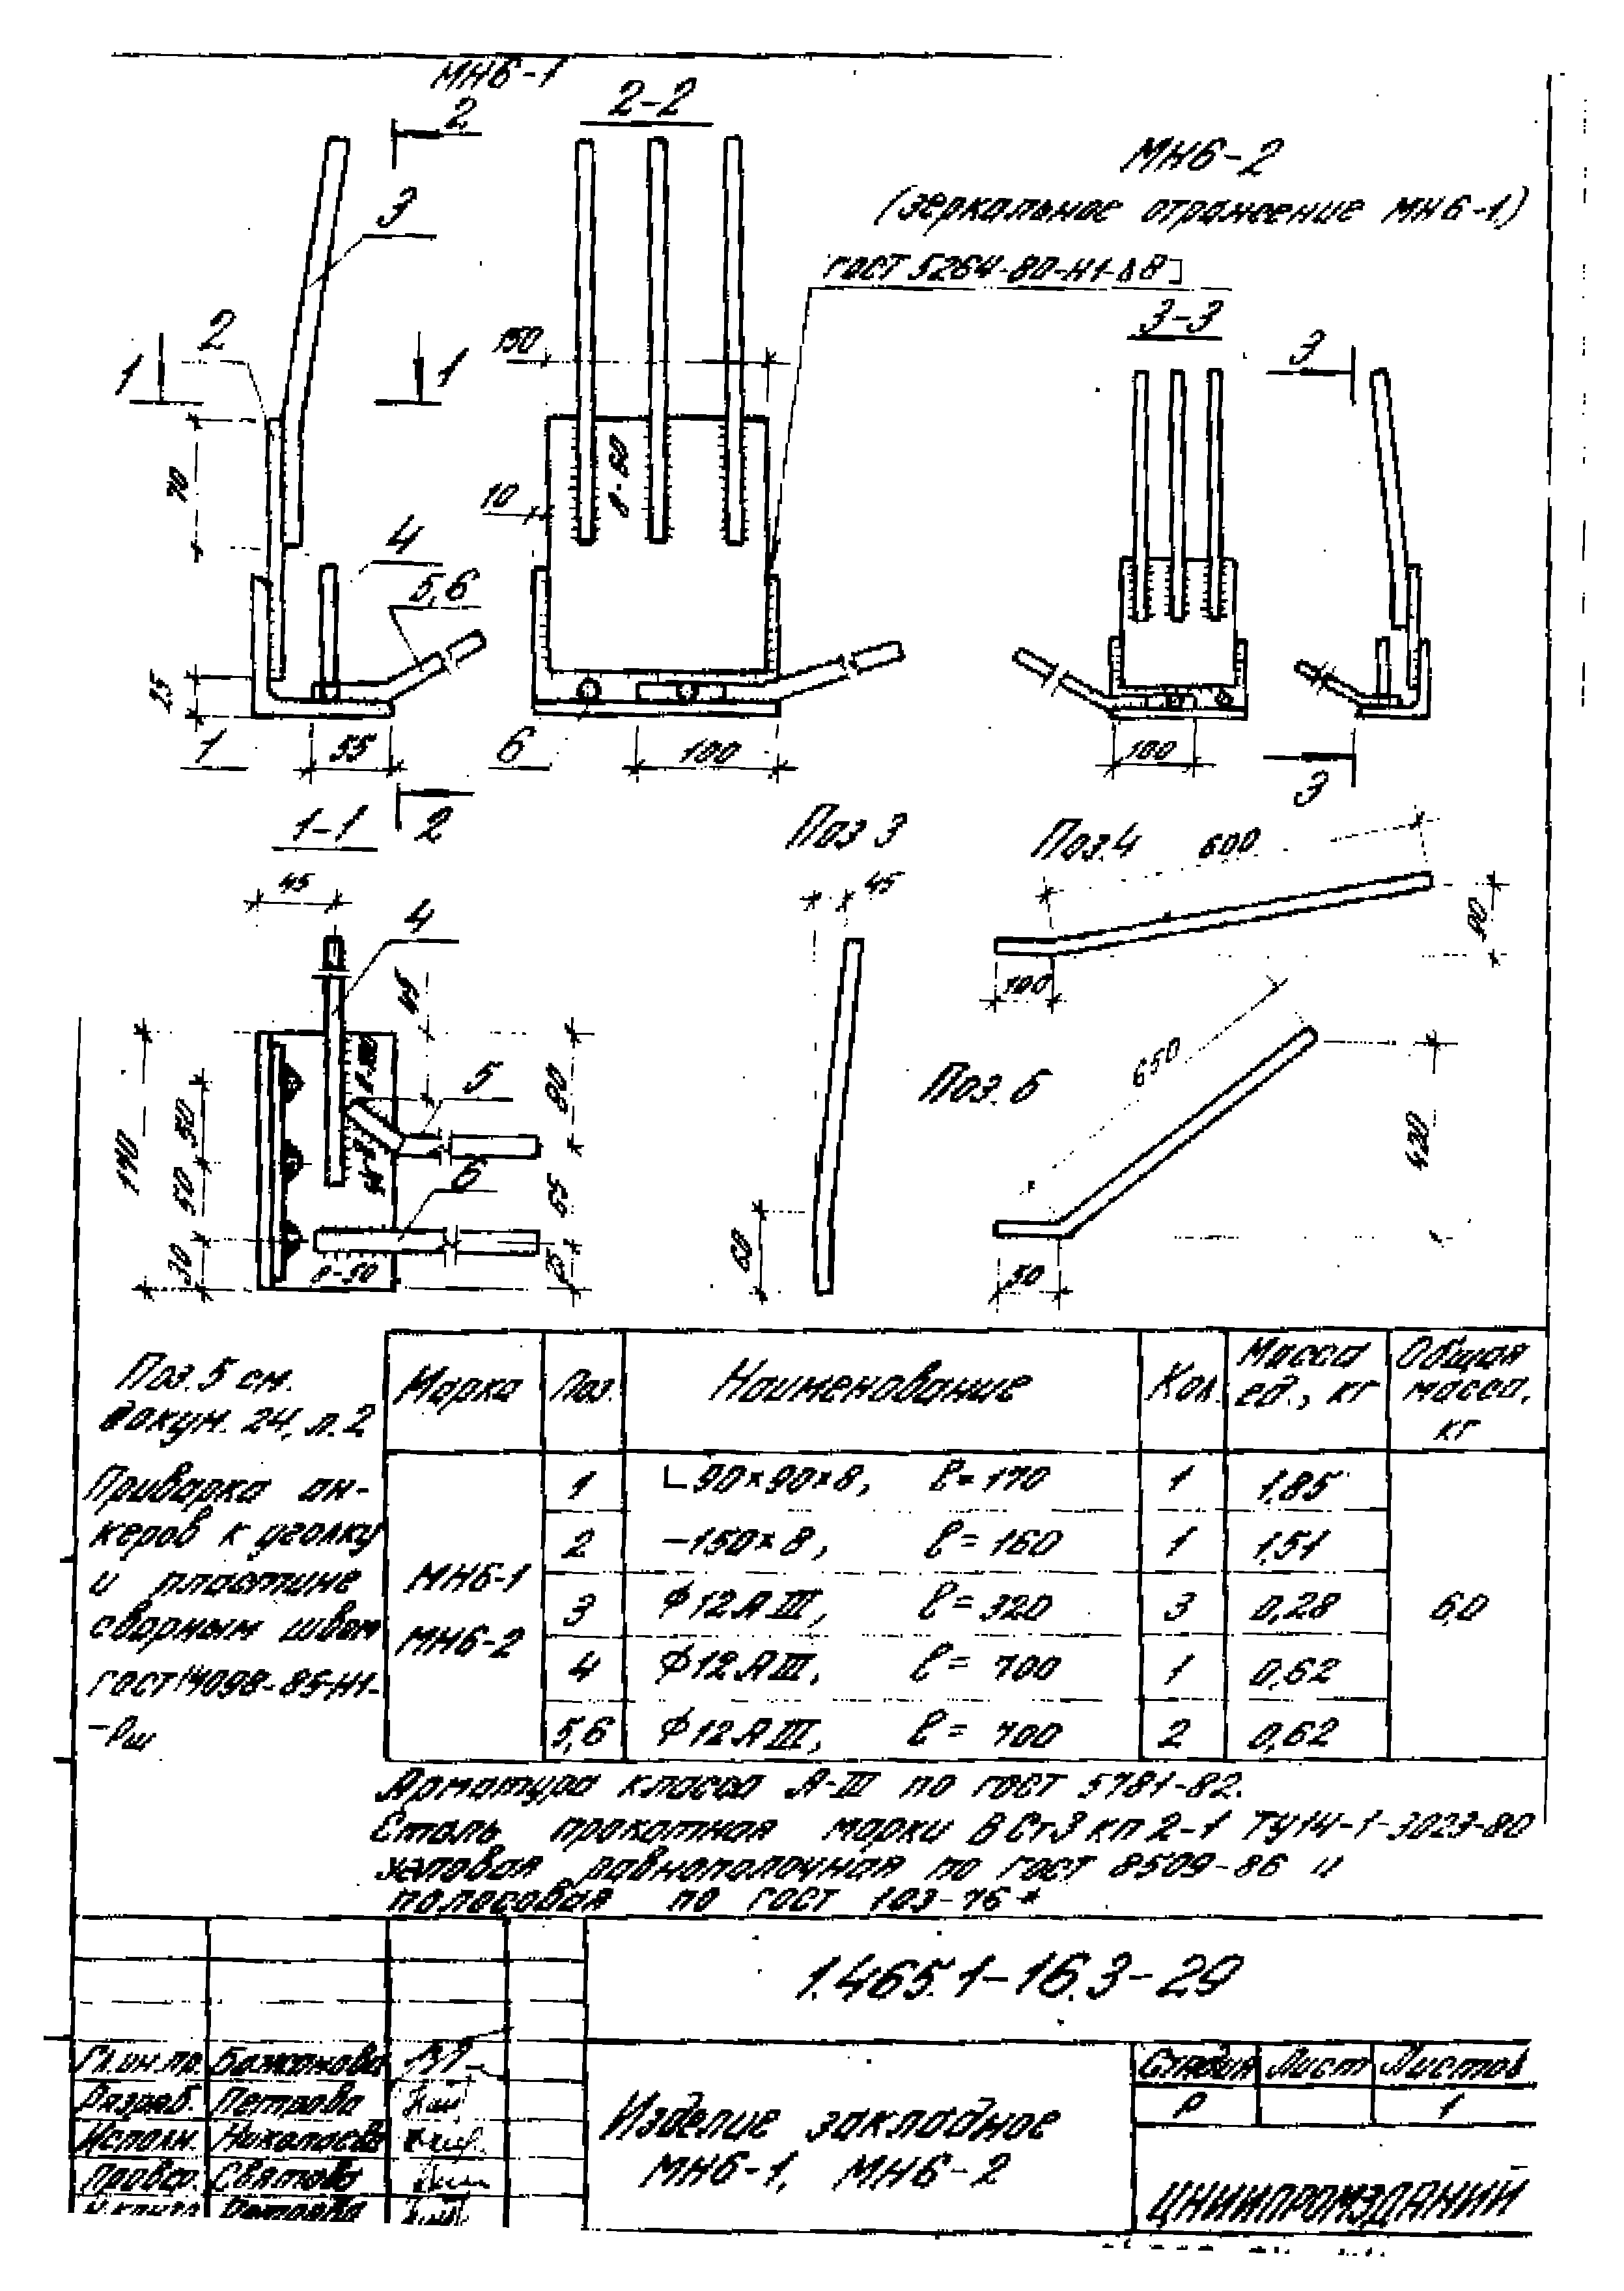 МН6-1
2
2-2
МН6-2
(зеркальное отражение МН6-1)
ГОСТ 5264-80-Н1-Δ8
3
2
1
1
150
3-3
3
70
10
8-60
4
5,6
25
1
55
6
100
100
3
1-1
2
Поз 3
Поз.4
600
45
45
90
4
100
45
5
80
650
Поз. 6
140
50
50
30
6
65
420
8-50
60
50
Поз. 5 см.
докум. 24, л. 2
Приварка ан-
керов к уголку
и пластине
сварным швом
ГОСТ 14098-85-Н1-
-Рш
Марка Поз. Наименование Кол. Масса ед., кг Общая масса, кг
МН6-1
МН6-2
1 ∟90×90×8, ℓ=170 1 1,85
2 −150×8, ℓ=160 1 1,51
3 ϕ12АIII, ℓ=320 3 0,28 6,0
4 ϕ12АIII, ℓ=700 1 0,62
5,6 ϕ12АIII, ℓ=700 2 0,62
Арматура класса А-III по ГОСТ 5781-82.
Сталь прокатная марки ВСт3кп2-1 ТУ14-1-3023-80
угловая равнополочная по ГОСТ 8509-86 и
полосовая по ГОСТ 103-76*
1.465.1-16.3-29
Гл.ин.пр. Бажанова
Разраб. Петрова
Исполн. Николаева
Провер. Святова
Н.контр. Петрова
Изделие закладное
МН6-1, МН6-2
Стадия Лист Листов
Р 1
ЦНИИПРОМЗДАНИЙ